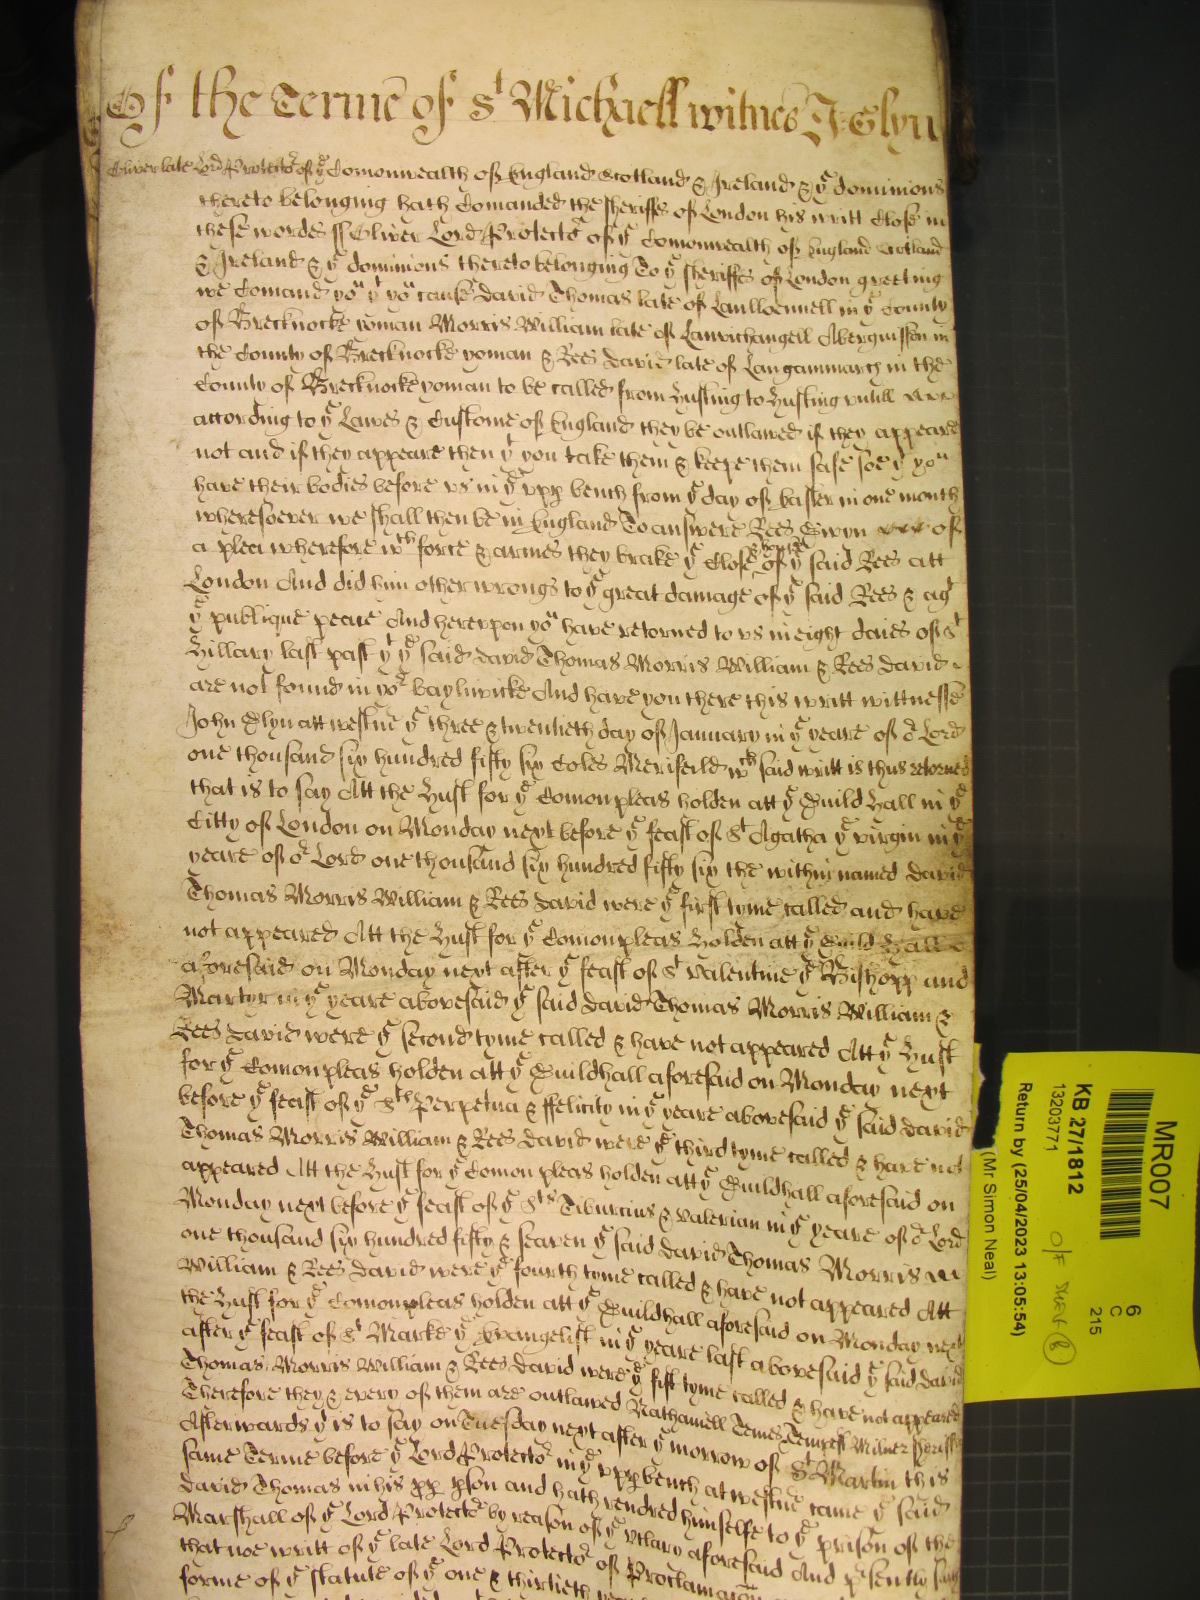 Of the Terme of St Michaell witnes J Glyn
Oliver late Lord Protector of ye Comonwealth of England Scotland & Ireland & ye dominions
thereto belonging hath Comanded the sheriffes of London his writt Close in
these wordes ss Oliver Lord Protector of ye Comonwealth of England Scotland
& Ireland & ye dominions thereto belonging To ye sheriffes of London greeting
we Comand you yt you cause David Thomas late of in ye County
of Brecknocke yoman Morris William late of Lanvichangell in
the County of Brecknocke yoman & Rees David late of Langammarch in the
County of Brecknocke yoman to be called from Husting to Husting untill
according to ye Lawes & Custome of England they be outlawed if they appeare
not and if they appeare then yt you take them & keepe them safe soe yt you
have their bodies before us in ye upp bench from ye day of Easter in one month
wheresoever we shall then be in England To answere Rees Gwyn of
a plea wherefore wth force & armes they brake ye Close & house of ye said Rees att
London And did him other wrongs to ye great damage of ye said Rees & agt
ye publique peace And hereupon you have retorned to us in eight daies of St
Hillary last past yt ye said David Thomas Morris William & Rees David
are not found in yor bayliwicke And have you there this writt wittnesse
John Glyn att westmr ye three & twentieth day of January in ye yeare of or Lord
one thousand six hundred fifty six Coles Merifeild wch said writt is thus retorned
that is to say Att the Hust for ye Comon pleas holden att ye Guild Hall in ye
Citty of London on Monday next before ye feast of St Agatha ye virgin in ye
yeare of or Lord one thousand six hundred fifty six the within named David
Thomas Morris William & Rees David were ye first tyme called and have
not appeared Att the Hust for ye Comon pleas holden att ye Guild Hall
aforesaid on Monday next after ye feast of St Valentine ye Bishopp and
Martyr in ye yeare abovesaid ye said David Thomas Morris William &
Rees David were ye second tyme called & have not appeared Att ye Hust
for ye Comon pleas holden att ye Guildhall aforesaid on Monday next
before ye feast of ye Sts Perpetua & ffelicity in ye yeare abovesaid ye said David
Thomas Morris William & Rees David were ye third tyme called & have not
appeared Att the Hust for ye Comon pleas holden att ye Guildhall aforesaid on
Monday next before ye feast of ye Sts Tiburcius & Valerian in ye yeare of or Lord
one thousand six hundred fifty & seaven ye said David Thomas Morris
William & Rees David were ye fourth tyme called & have not appeared Att
the Hust for ye Comon pleas holden att ye Guildhall aforesaid on Monday next
after ye feast of St Marke ye Evangelist in ye yeare last abovesaid ye said David
Thomas Morris William & Rees David were ye fift tyme called & have not appeared
Therefore they & every of them are outlawed Nathaniell Temes Tempest Milner sheriffs
Afterwards yt is to say on Tuesday next after ye morrow of St Martin this
same Terme before ye Lord Protector in ye upp bench at westmr came ye said
David Thomas in his pp pson and hath rendred himselfe to ye prison of the
Marshall of ye Lord Protector by reason of ye utlary aforesaid And psently saith
that noe writt of ye late Lord Protector of Proclamacon
forme of ye statute of ye one & thirtieth
MR007
6
C
215
KB 27/1812
13203771
Return by (25/04/2023 13:05:54)
(Mr Simon Neal)